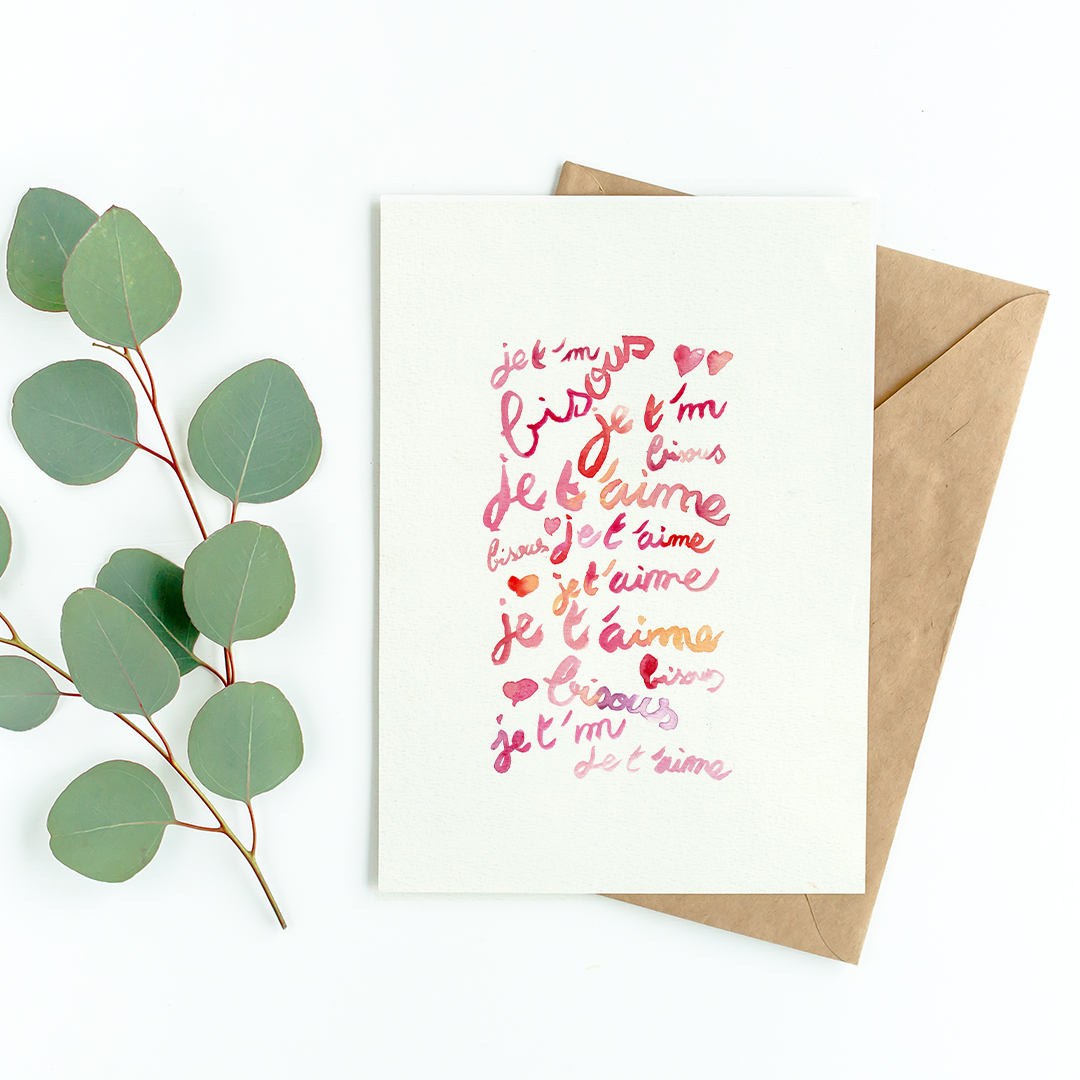 je t'm
bisous
je t'm
bisous
je t'aime
bisous je t'aime
je t'aime
je t'aime
bisous
bisous
je t'm
Je t'aime